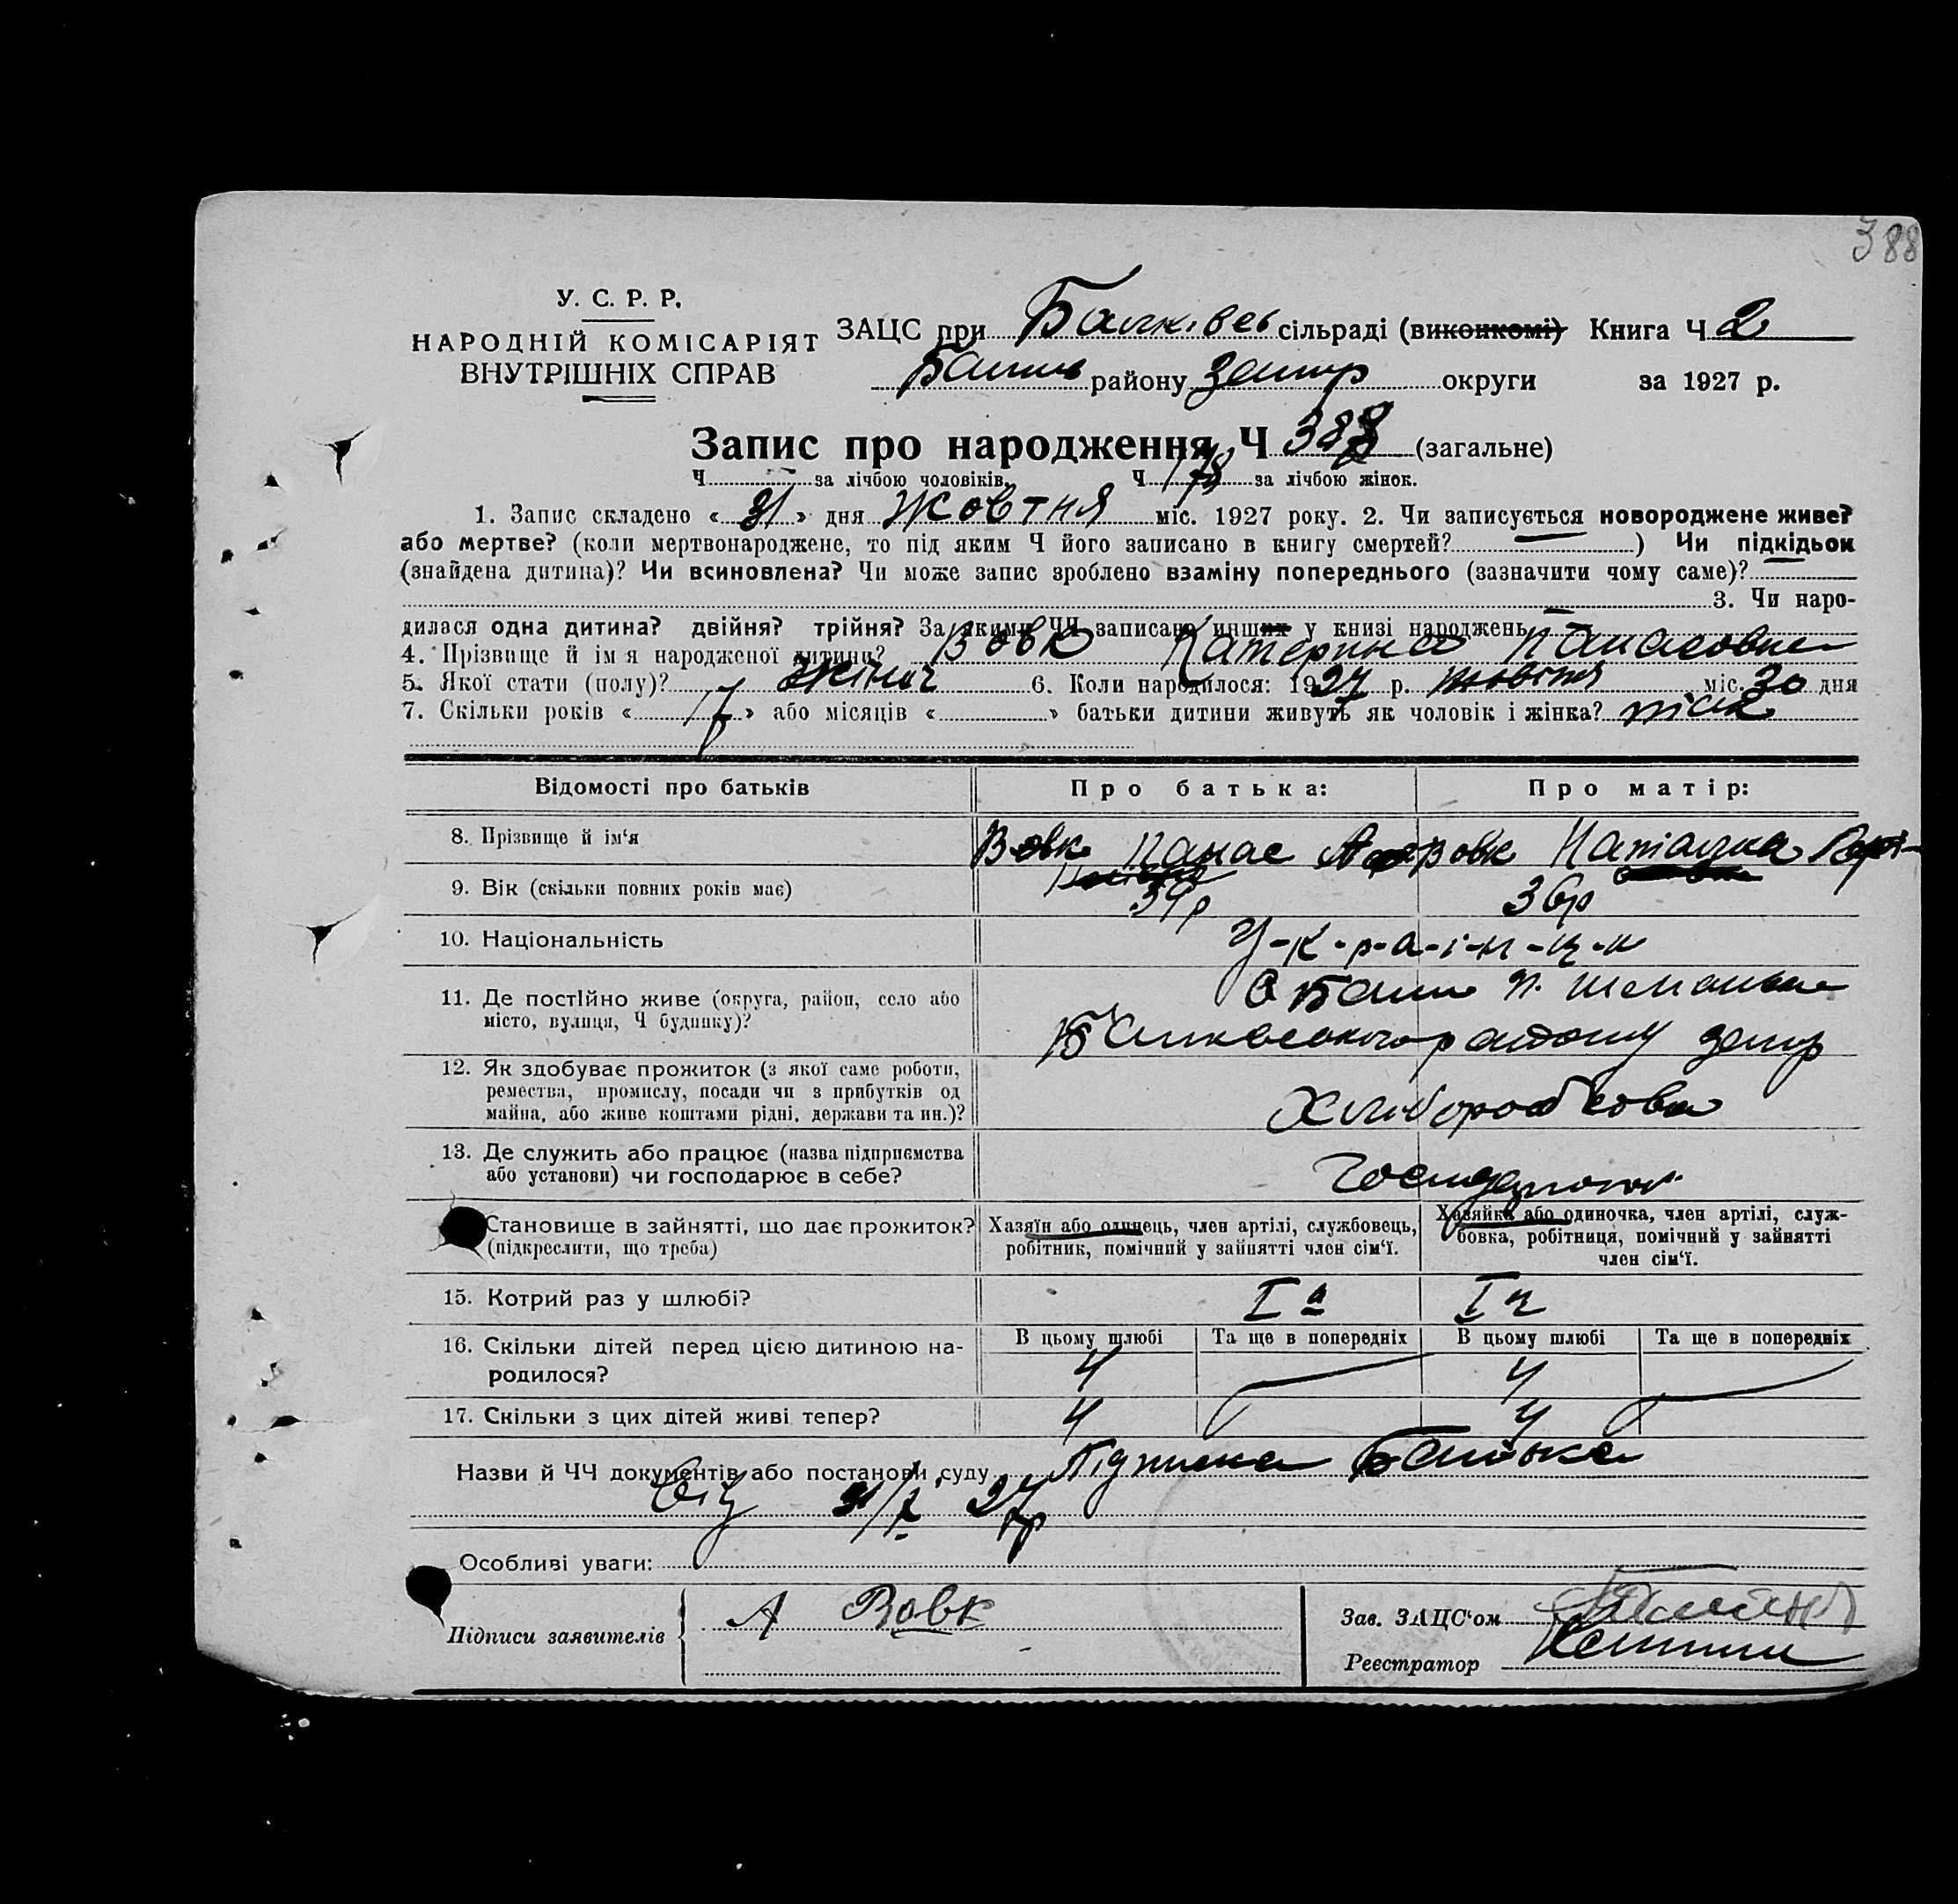 388
У. С. Р. Р.
НАРОДНІЙ КОМІСАРІЯТ
ВНУТРІШНІХ СПРАВ
ЗАЦС при Балківсь сільраді (виконкомі) Книга Ч 2
району Запор округи за 1927 р.
Запис про народження Ч 388 (загальне)
Ч за лічбою чоловіків. Ч за лічбою жінок.
1. Запис складено « 31 » дня Жовтня міс. 1927 року. 2. Чи записується новороджене живе?
або мертве? (коли мертвонароджене, то під яким Ч його записано в книгу смертей? ) Чи підкідьок
(знайдена дитина)? Чи всиновлена? Чи може запис зроблено взаміну попереднього (зазначити чому саме)?
3. Чи наро-
дилася одна дитина? двійня? трійня? За якими ЧЧ записано инших у книзі народжень
4. Прізвище й ім'я народженої дитини? Вовк Катерина Панасовна
5. Якої стати (полу)? жіноч 6. Коли народилося: 1927 р. жовтня міс. 30 дня
7. Скільки років « 17 » або місяців « » батьки дитини живуть як чоловік і жінка?
Відомості про батьків Про батька: Про матір:
8. Прізвище й ім'я Вовк Панас Вовк Наталка
9. Вік (скільки повних років має) 39р 36р
10. Національність У-к-р-а-ї-н-ц-и
11. Де постійно живе (округа, район, село або
місто, вулиця, Ч будинку)?
12. Як здобуває прожиток (з якої саме роботи,
ремества, промислу, посади чи з прибутків од
майна, або живе коштами рідні, держави та ин.)?
13. Де служить або працює (назва підприємства
або установи) чи господарює в себе?
Становище в зайнятті, що дає прожиток?
(підкреслити, що треба)
Хазяїн або одинець, член артілі, службовець,
робітник, помічний у зайнятті член сім'ї.
Хазяйка або одиночка, член артілі, служ-
бовка, робітниця, помічний у зайнятті
член сім'ї.
15. Котрий раз у шлюбі? I й I й
16. Скільки дітей перед цією дитиною на-
родилося?
В цьому шлюбі Та ще в попередніх В цьому шлюбі Та ще в попередніх
4 4
17. Скільки з цих дітей живі тепер? 4 4
Назви й ЧЧ документів або постанови суду Підписка Батька
від 31/X 27р
Особливі уваги:
Підписи заявителів А Вовк
Зав. ЗАЦС'ом
Реєстратор